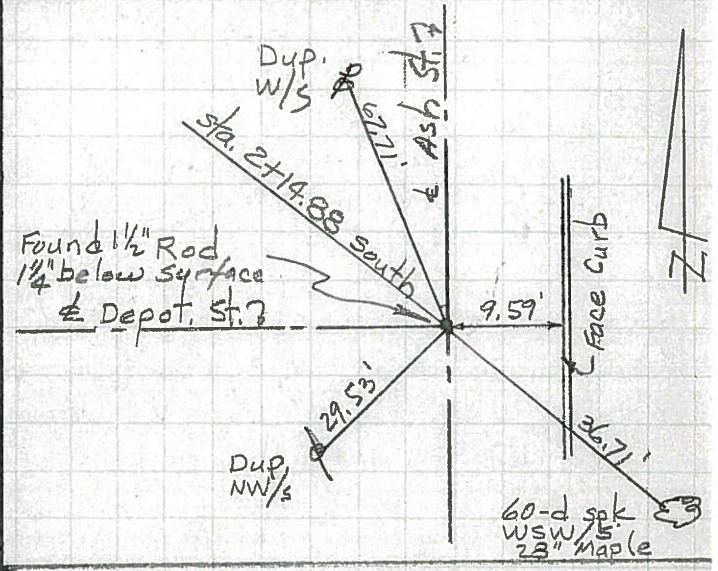 Dup.
W/S
67.71'
℄ Ash St.?
sta. 2+14.88 south
Found 1½" Rod
1¼" below surface
℄ Depot. St.?
9.59'
Face Curb
N
29.53'
Dup.
NW/S
36.71'
60-d spk
WSW/S
28" Maple